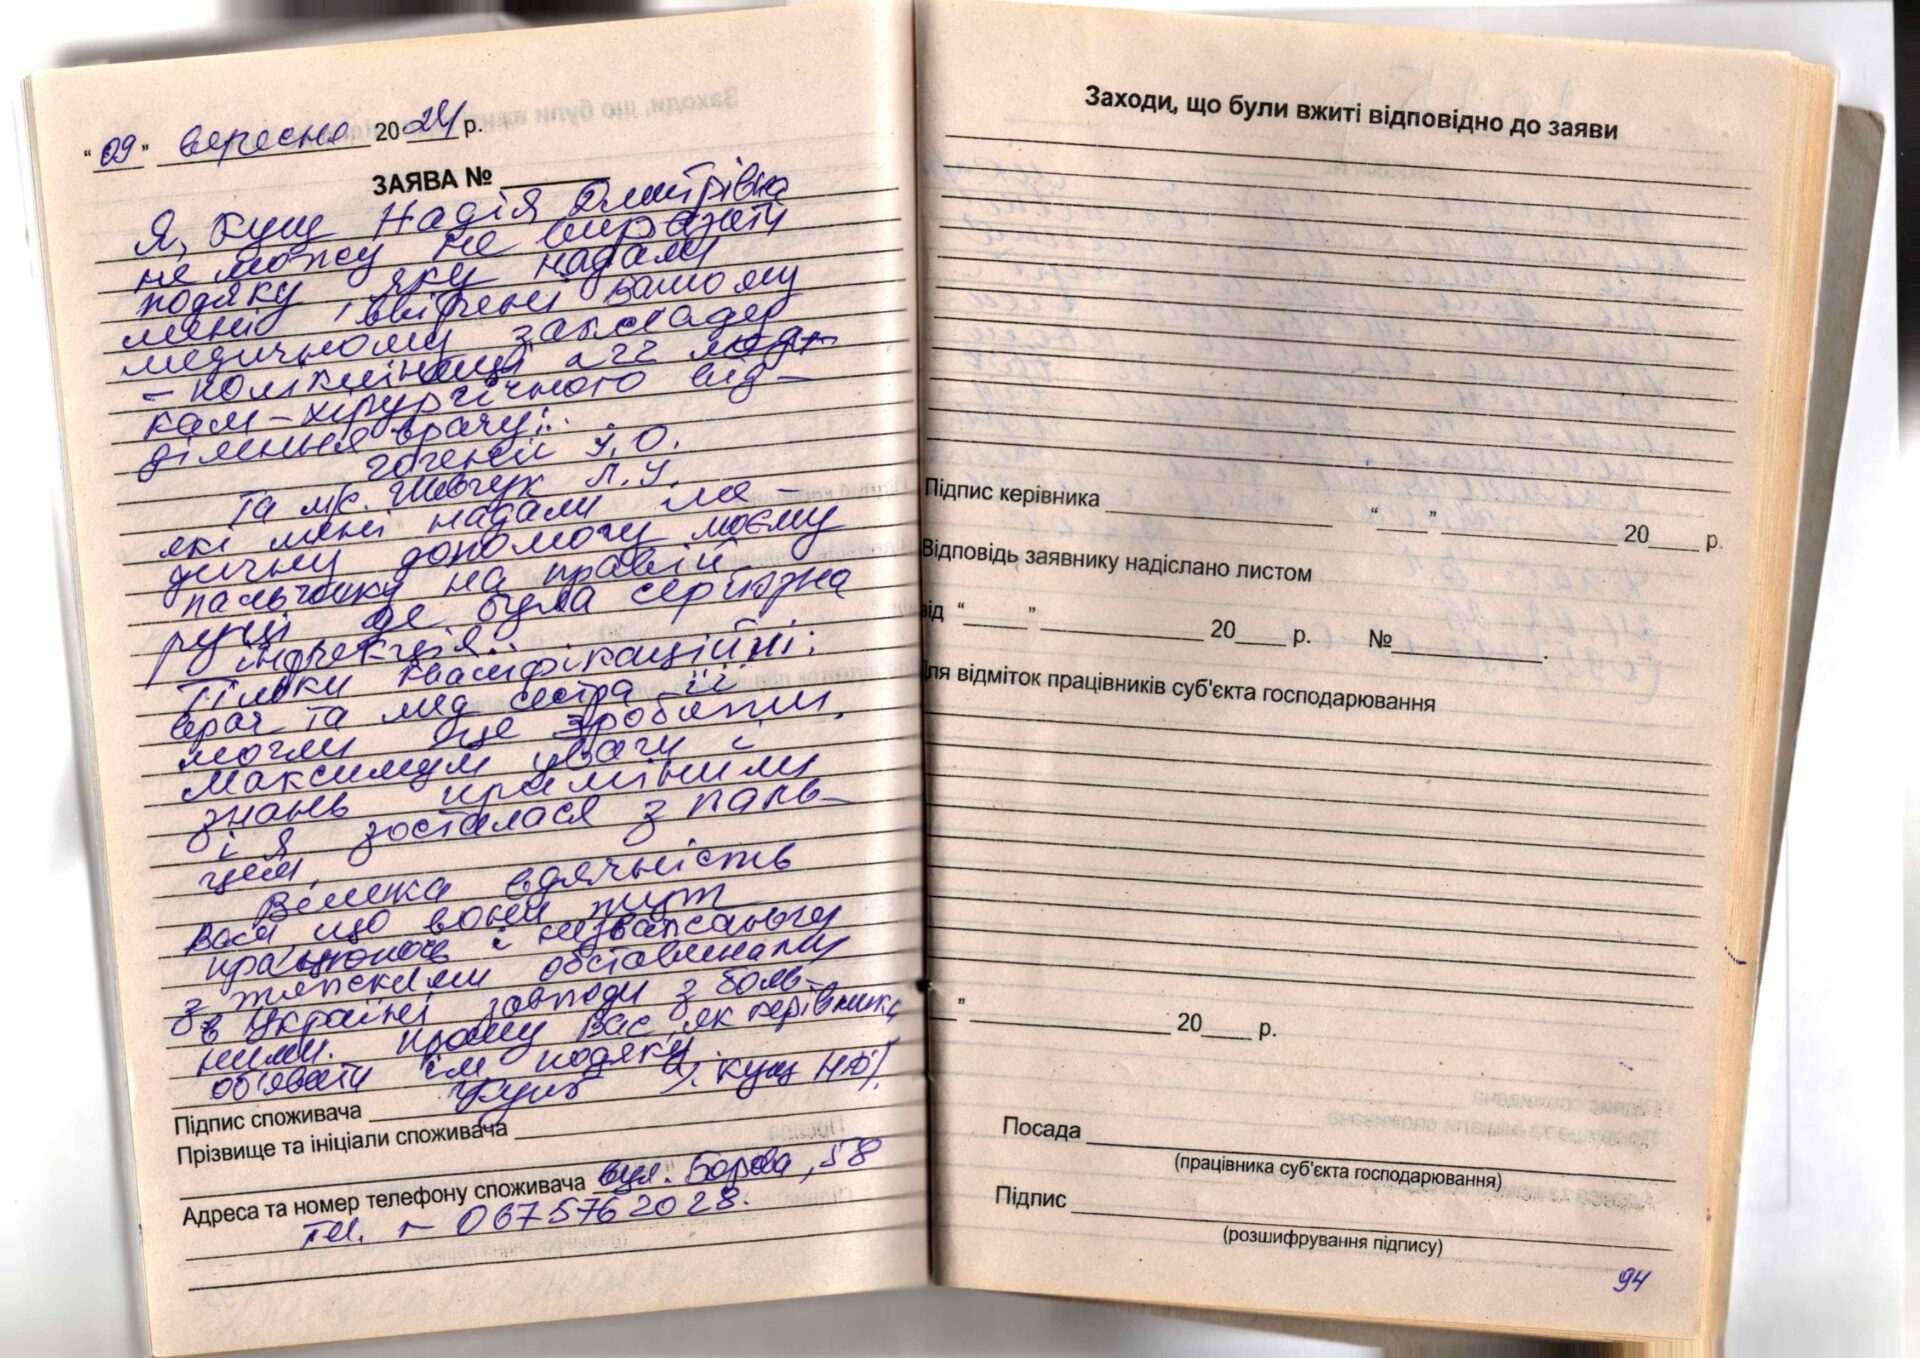 "09" вересня 2024 р.
ЗАЯВА № ______
Я, Кущ Надія Дмитрівна
не можу не виразати
подяку яку надали
мені, ввірені Вашому
медичному закладу
- поліклініці
кам - хірургічного від-
ділення врачу:
У.О.
та м/с. Шевчук Л.У.
які мені надали ме-
дичну допомогу моєму
пальчику на правій
руці де була серйозна
інфекція.
Тільки кваліфікаційні:
врач та мед сестра її
могли це зробити.
Максимум уваги і
знань примінили
і я зосталася з паль-
цем.
Велика вдячність
Вам, що вони тут
працюють і незважаючи
з тяжкими обставинами
в Україні завжди з боль-
ними. Прошу Вас, як керівника,
об'явити їм подяку.
Підпис споживача Кущ Н.Д.
Прізвище та ініціали споживача
Адреса та номер телефону споживача вул. Борова, 58
тел. - 0675762028.
Заходи, що були вжиті відповідно до заяви
Підпис керівника ______ "___" ______ 20___ р.
Відповідь заявнику надіслано листом
від "___" ______ 20___ р. № ______.
Для відміток працівників суб'єкта господарювання
" ______ 20___ р.
Посада
(працівника суб'єкта господарювання)
Підпис
(розшифрування підпису)
94